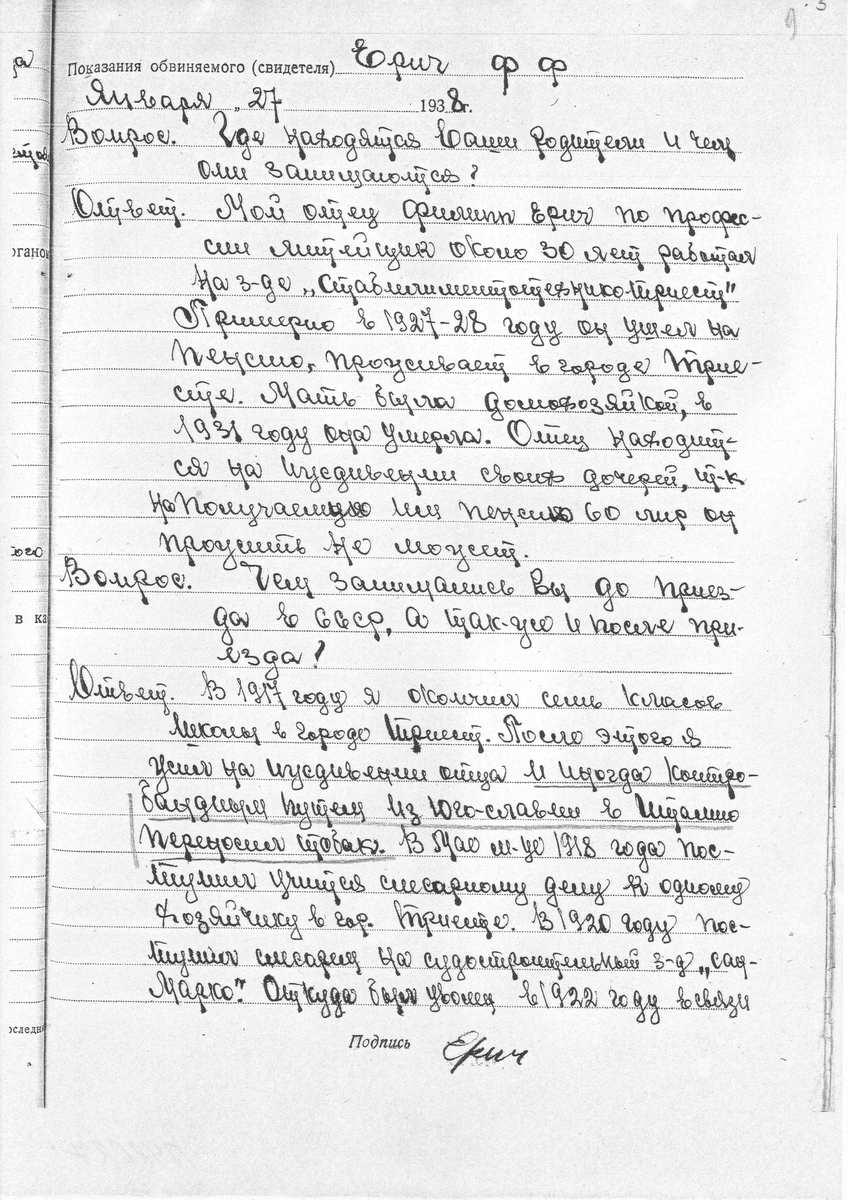 Показания обвиняемого (свидетеля) Ерич Ф Ф
Января „ 27 193 8 г.
Вопрос. Где находятся Ваши родители и чем
они занимаются?
Ответ. Мой отец Филипп Ерич по профес-
сии литейщик около 30 лет работал
на з-де
Примерно в 1927-28 году он ушел на
пенсию, проживает в городе Трие-
сте. Мать была домохозяйкой, в
1931 году она умерла. Отец находит-
ся на иждивении своих дочерей, т-к
на получаемую им пенсию 60 лир он
прожить не может.
Вопрос. Чем занимались Вы до приез-
да в СССР, а так-же и после при-
езда?
Ответ. В 1917 году я окончил семь класов
школы в городе Триест. После этого я
жил на иждивении отца и иногда контро-
бандным путем из Юго-славии в Италию
переносил табак. В Мае м-це 1918 года пос-
тупил учится слесарному делу к одному
хозяйчику в гор. Триесте. В 1920 году пос-
тупил слесарем на судостроительный з-д „Сан-
Марко". Откуда был уволен в 1922 году в связи
Подпись Ерич